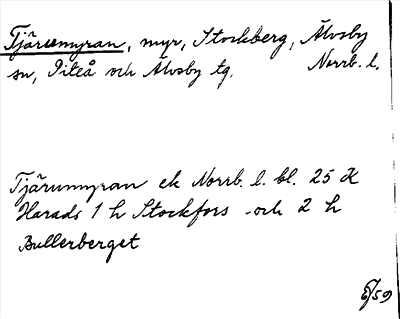 Tjärumyran, myr, Stockberg, Älvsby
sn, Piteå och Älvsby tg. Norrb. l.
Tjärumyran ek Norrb. l. bl. 25 K
Harads 1 h Stockfors och 2 h
Bullerberget
59